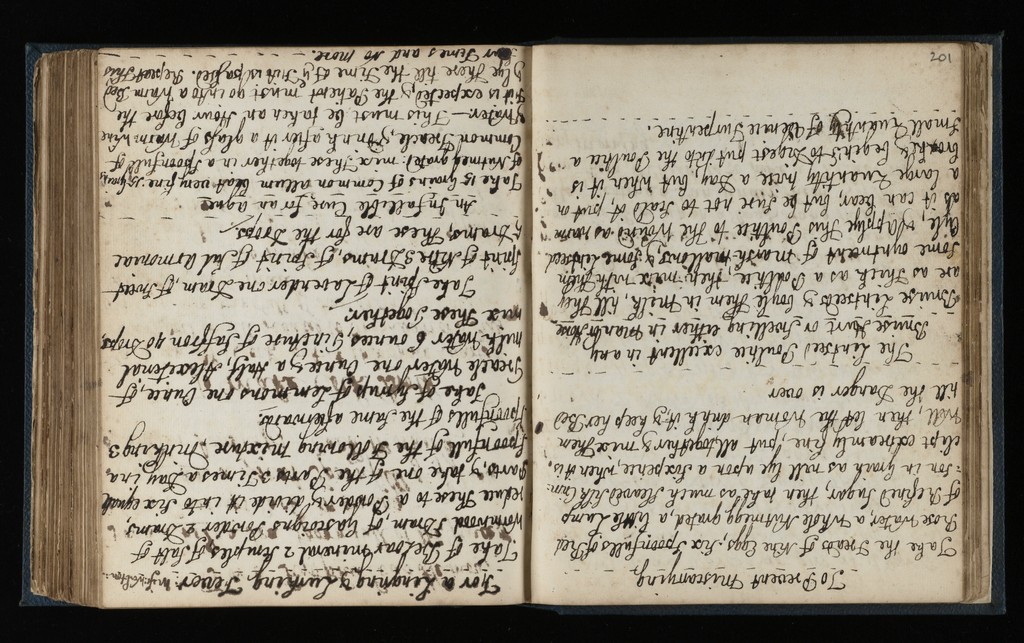 To Prevent Miscarrying
Take the Treads of Nine Eggs, Six Spoonfulls of Red
Rose Water, a Whole Nuttmegg grated, a little Lump
of Refined Sugar, then take as much Sleaved Silk Crim=
=son in grain as will lye upon a Sixpence, when it is
clipt extreamly fine, put all together & mix them
well, then let the Woman drink it, & keep her Bed
till the Danger is over
The Lintseed Poultice excellent in any
Bruise Hurt or Swelling either in Man or Horse
Bruise Lintseed & boyle them in Milk, till they
are as Thick as a Poultice, then mix with them
some oyntment of Marsh mallows, & some Lintseed
Oyle, & Apply This Poultice to the Wound as warm
as it can bear, but be Sure not to Scald it, put on
a large Quantity twice a Day, but when it is
broak & begins to Digest put into the Poultice a
Small Quantity of Venice Turpentine.
For a Linging & Lurking Feaver:
Take of Bezoar mineral 2 Scruples of Salt of
Wormwood 1 Dram, of Gascoigns Powder 2 Drams,
reduce These to a Powder & divide it into Six equal
parts, & take one of the Parts 3 Times a Day in a
Spoonfull of the Following mixture Drinking 3
Spoonfulls of the Same afterwards.
Take of Syrrup of Lemmons one Ounce, of
Treacle Water one Ounce & a half, Alexiterial
milk Water 6 ounces Tincture of Saffron 40 Drops
mix These Together.
Take Spirit of Lavender one Dram, of Sweet
Spirit of Nitre 3 Drams, of Spirit of Sal armoniac
2 Drams, These are for the Drops.
An Infallible Cure for an ague
Take 15 Grains of Common allum beat very fine, 15 grains
of Nutmeg grated: mix These together in a Spoonfull of
Common Treacle, & Drink after it a glass of Warm Wine
& Water — This must be taken an Hour before the
Fit is expected, & the Patient must go into a Warm Bed
& lye There till the Time of ye Fitt is passed. Repeat This
Times and no more.
201